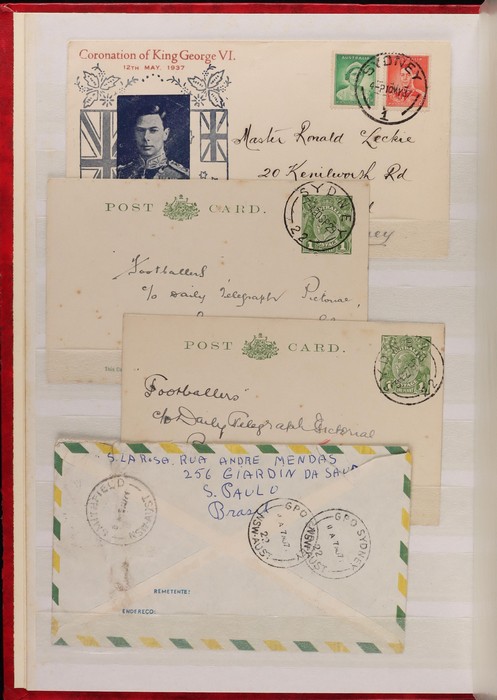 Coronation of King George VI.
12TH MAY, 1937
SYDNEY
1
Master Ronald Leckie
20 Kenilworth Rd
POST CARD.
SYDNEY
22
Footballers
c/o Daily Telegraph Pictorial,
POST CARD.
SYDNEY
22
Footballers
c/o Daily Telegraph Pictorial
S. LAROSA, RUA ANDRE MENDAS
256 GIARDIN DA SAUD
S. PAULO
Brasil
NSW-AUST
GPO
22
NSW-AUST
GPO SYDNEY
22
NSW-AUST
REMETENTE:
ENDEREÇO: